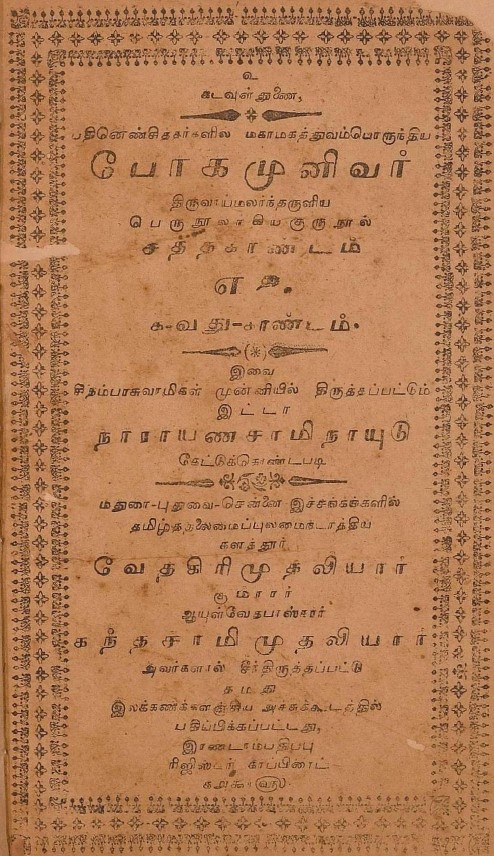 உ
கடவுள் துணை,
பதினெண்சித்தர்களில் மகாமகத்துவம்பொருந்திய
போகமுனிவர்
திருவாய்மலர்ந்தருளிய
பெருநூலாகியகுருநூல்
சத்தகாண்டம்
௭ த.
௧-வது-காண்டம்.
இவை
சிதம்பாசுவாமிகள் முன்னியில் திருத்தப்பட்டும்
இட்டா
நாராயணசாமிநாயுடு
கேட்டுக்கொண்டபடி
மதுரை-புதுவை-சென்னை இச்சங்கங்களில்
தமிழ்த்தலைமைப்புலமைநடாத்திய
களத்தூர்
வேதகிரிமுதலியார்
குமாரர்
ஆயுள்வேதபாஸ்கரர்
கந்தசாமிமுதலியார்
அவர்களால் சீர்திருத்தப்பட்டு
தமது
இலக்கணக்களஞ்சிய அச்சுக்கூடத்தில்
பதிப்பிக்கப்பட்டது,
இரண்டாம்பதிப்பு
ரிஜிஸ்டர் காப்பிரைட்